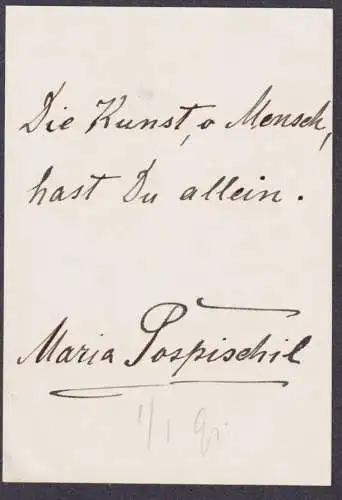 Die Kunst, o Mensch,
hast Du allein.
Maria Pospischil